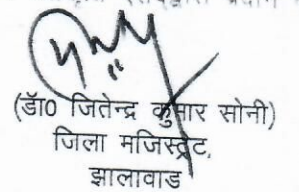 (डॉ0 जितेन्द्र कुमार सोनी)
जिला मजिस्ट्रेट,
झालावाड